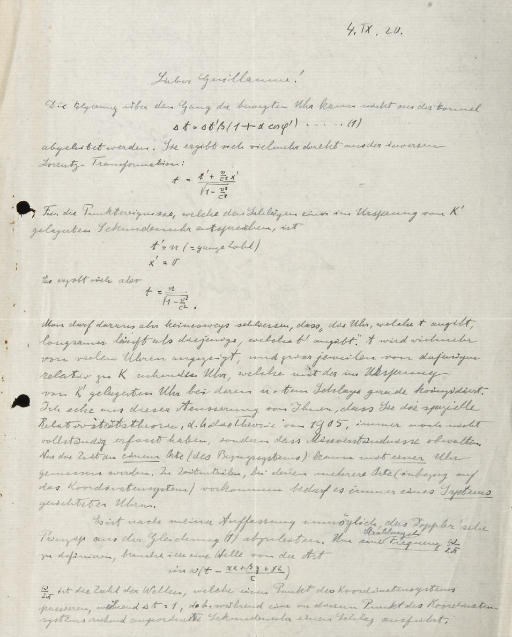 4. IX. 20.
Lieber Guillaume!
Die Uhr kann nicht aus der Formel
Δt = Δt'β(1 + α cosφ') ..... (1)
abgeleitet werden. Sie ergibt sich vielmehr direkt aus der inversen
Lorentz-Transformation:
t = (t' + v/c² x') / √(1 - v²/c²)
Für die Punktereignisse, welche den Schlägen einer im Ursprung von K'
gelegenen Sekundenuhr entsprechen, ist
t' = n (= ganze Zahl)
x' = 0
Es ergibt sich also
t = n / √(1 - v²/c²).
Man darf daraus aber keineswegs schliessen, dass "die Uhr, welche t angibt,
langsamer läuft als diejenige, welche t' angibt". t wird vielmehr
von vielen Uhren angezeigt, und zwar jeweilen von derjenigen
relativ zu K ruhenden Uhr, welche mit der im Ursprung
von K' gelegenen Uhr bei deren n-tem Schlage gerade koinzidiert.
Ich sehe aus dieser Aeusserung von Ihnen, dass Sie die spezielle
Relativitätstheorie, d. h. die Theorie von 1905, immer noch nicht
vollständig erfasst haben, sondern dass Missverständnisse obwalten.
Nur die Zeit an einem Orte (des Bezugssystems) kann mit einer Uhr
gemessen werden. In Zeiturteilen, bei denen mehrere Orte (in bezug auf
das Koordinatensystem) vorkommen bedarf es immer eines Systems
gerichteter Uhren.
Es ist nach meiner Auffassung unmöglich, das Doppler'sche
Prinzip aus der Gleichung (1) abzuleiten. Um eine Frequenz ω/2π
zu definieren, brauche ich eine Welle von der Art
sin ω(t - (αx + βy + γz)/c)
ω/2π ist die Zahl der Wellen, welche einen Punkt des Koordinatensystems
passieren, während Δt = 1, d. h. während eine an diesem Punkt des Koordinaten-
systems ruhend angeordnete Sekundenuhr einen Schlag ausführt.